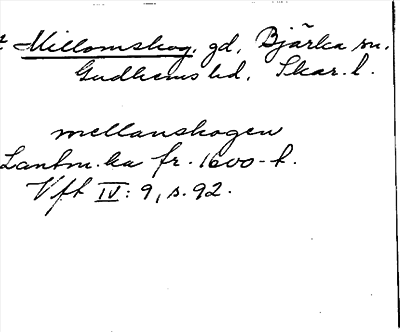 Millomskog, gd, Bjärka sn.
Gudhems hd, Skar. l.
mellanskogen
Lantm. ka fr. 1600-t.
Vft IV: 9, s. 92.